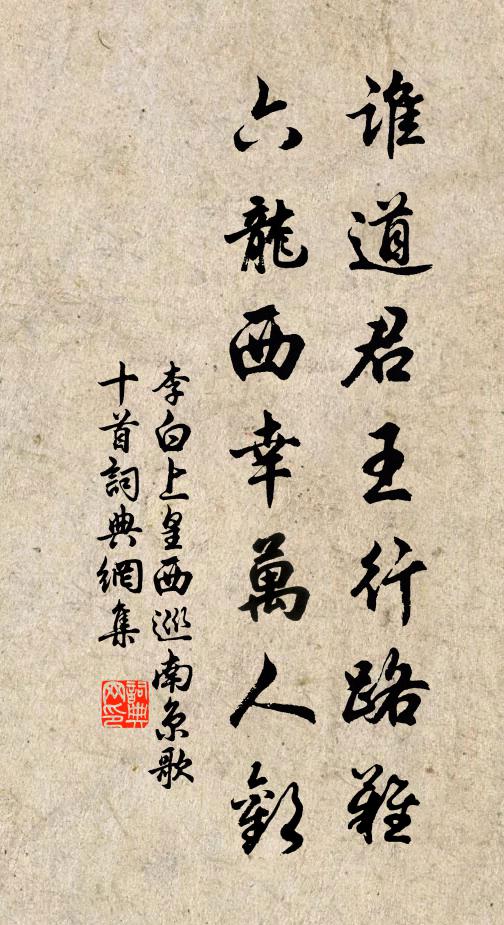 誰道君王行路難
六龍西幸萬人歡
李白上皇西巡南京歌
十首詞典網集
詞典
网印